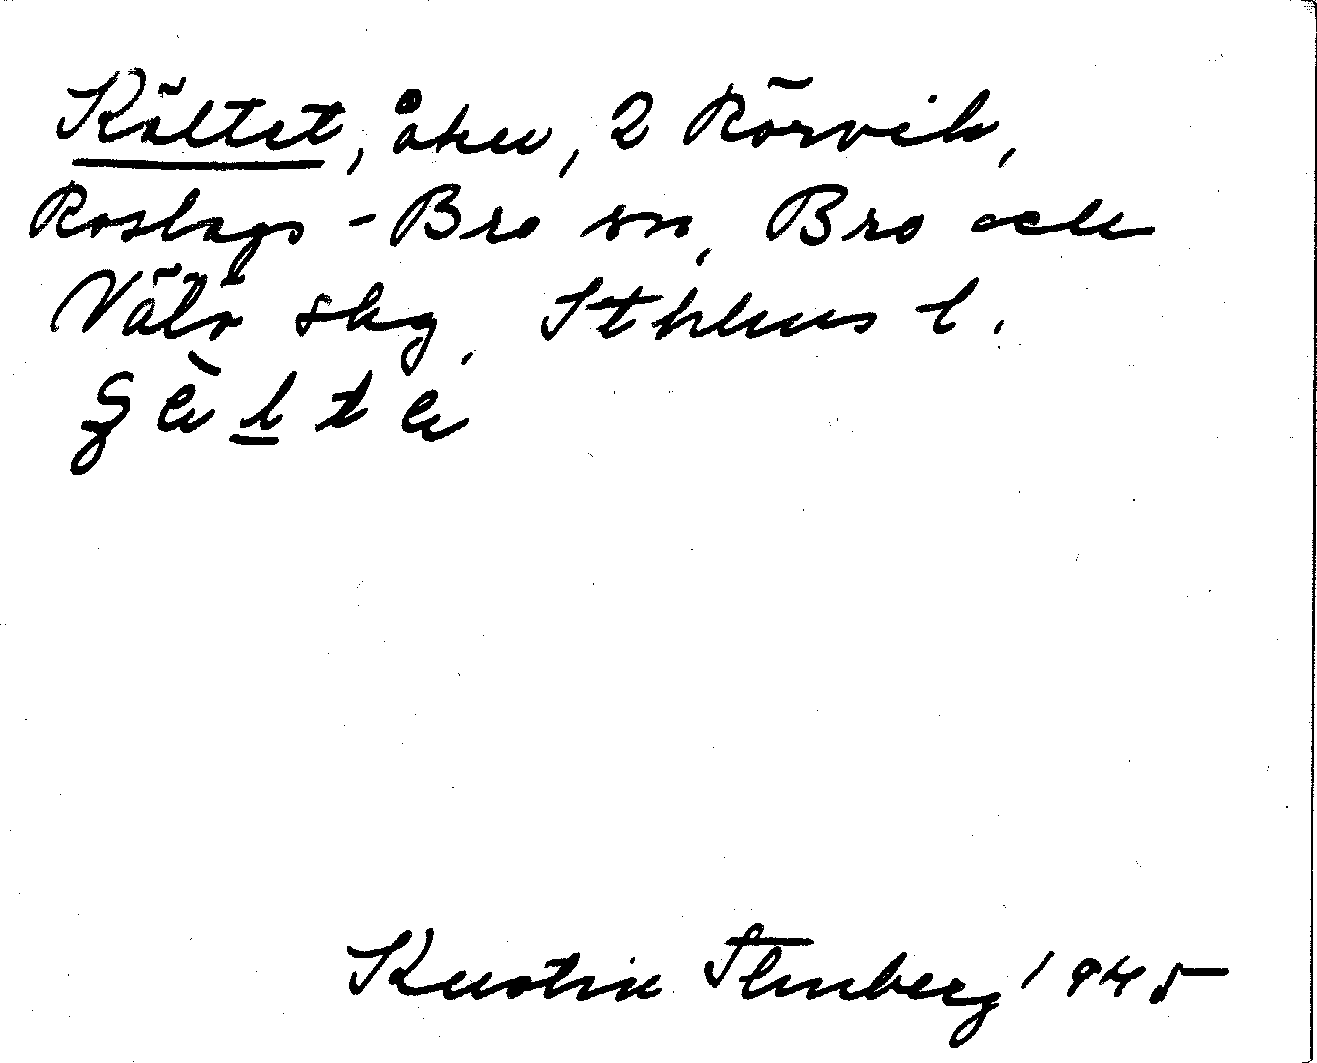 Kältet, åker, 2 Rörvik,
Roslags-Bro sn, Bro och
Vätö skg, Sthlms l.
Kerstin Flinberg 1945